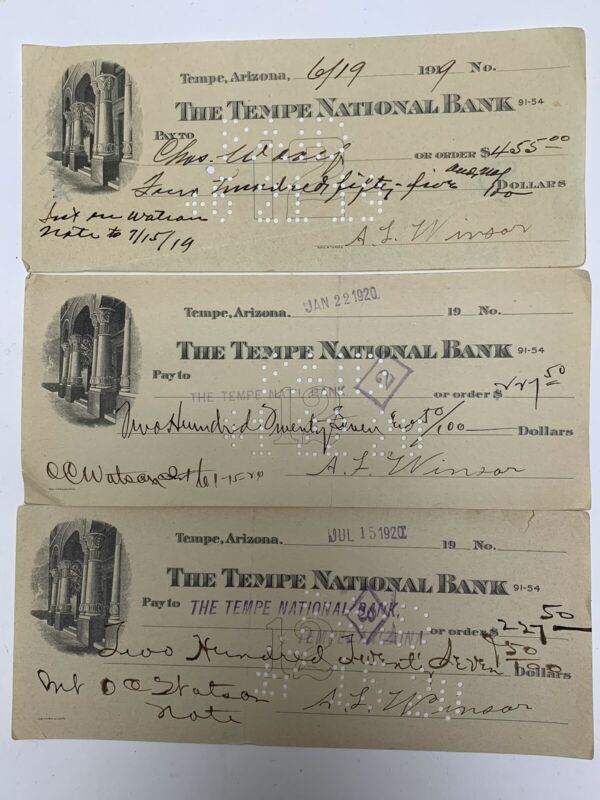 Tempe, Arizona, 6/19 1919 No.
THE TEMPE NATIONAL BANK 91-54
PAY TO
Chas. OR ORDER $455.00
Four Hundred fifty-five and no/00 DOLLARS
Int on Watson
Note to 7/15/19
A. L. Winsor
Tempe, Arizona. JAN 22 1920 19 No.
THE TEMPE NATIONAL BANK 91-54
Pay to THE TEMPE NATL BANK. or order $227.50
Two Hundred Twenty Seven 50/100 Dollars
O C Watson Int to 1-15-20
A. L. Winsor
Tempe, Arizona. JUL 15 1920 19 No.
THE TEMPE NATIONAL BANK 91-54
Pay to THE TEMPE NATIONAL BANK. or order $227.50
Two Hundred Twenty Seven 50/100 Dollars
Int O C Watson
Note
A. L. Winsor